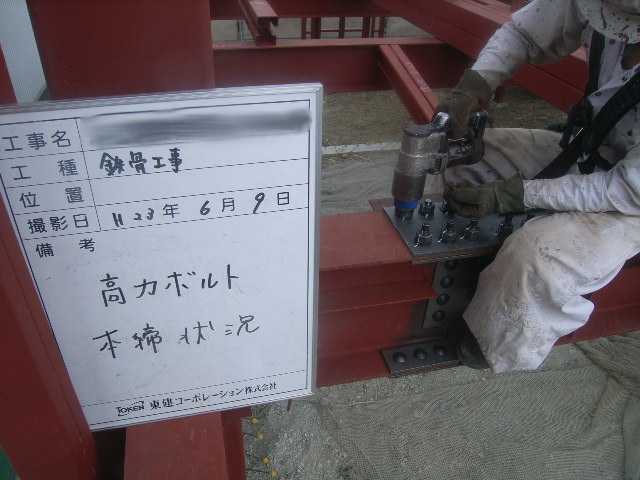 工事名
工種 鉄骨工事
位置
撮影日 H23年 6月 9日
備考
高力ボルト
本締状況
TOKEN 東建コーポレーション株式会社